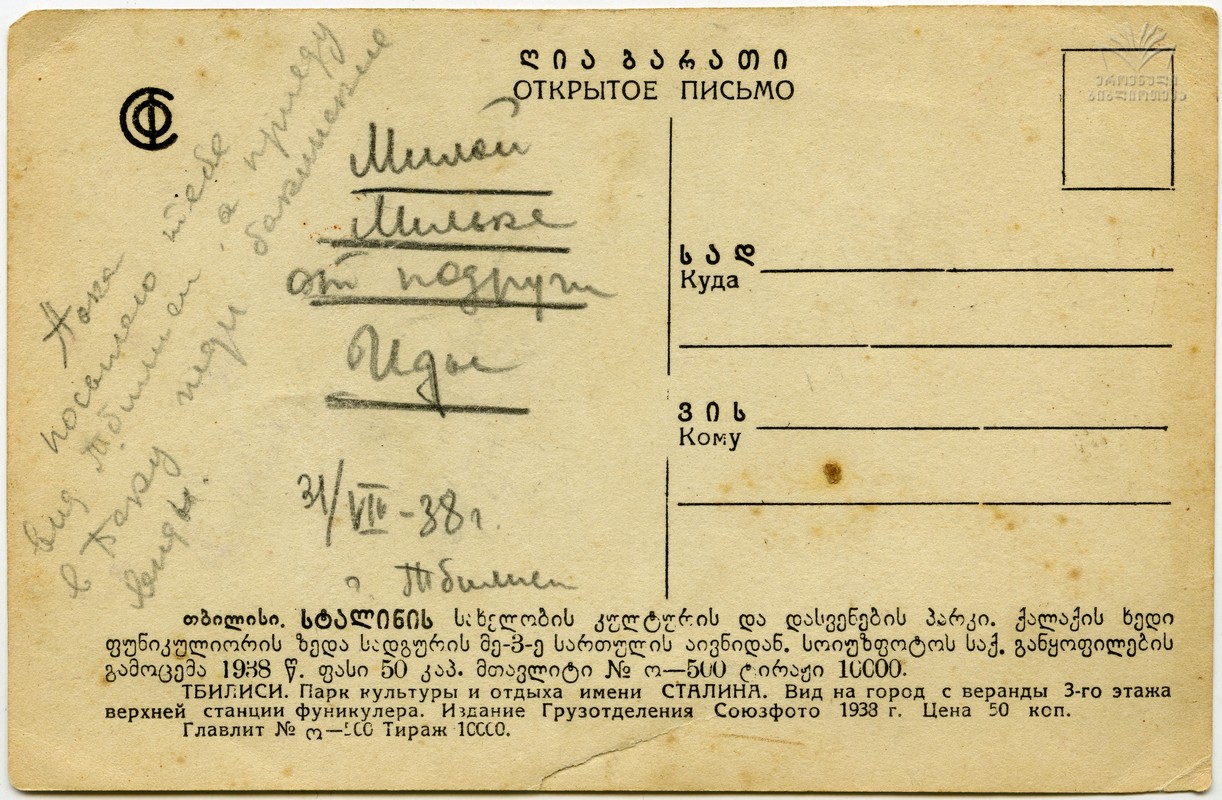 ღია ბარათი
ОТКРЫТОЕ ПИСЬМО
ეროვნული
ბიბლიოთეკა
СФ
Милой
Мильке
от подруги
Иды
31/VII-38 г.
г. Тбилиси
Пока
посылаю тебе
вид Тбилиси, а приеду
в Баку жди бакинские
виды.
სად
Куда
ვის
Кому
თბილისი. სტალინის სახელობის კულტურის და დასვენების პარკი. ქალაქის ხედი
ფუნიკულიორის ზედა სადგურის მე-3-ე სართულის აივნიდან. სოიუზფოტოს საქ. განყოფილების
გამოცემა 1938 წ. ფასი 50 კაპ. მთავლიტი № ო—500 ტირაჟი 10000.
ТБИЛИСИ. Парк культуры и отдыха имени СТАЛИНА. Вид на город с веранды 3-го этажа
верхней станции фуникулера. Издание Грузотделения Союзфото 1938 г. Цена 50 коп.
Главлит № ო—500 Тираж 10000.